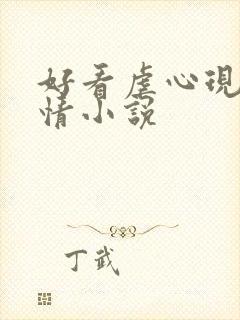 好看虐心现
情小说
丁武